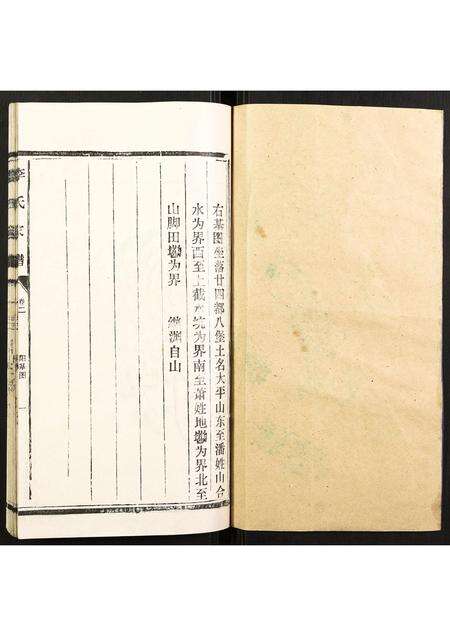 右基图坐落廿四都八堡土名大平山东至潘姓山合
水为界西至上截水坑为界南至萧姓地为界北至
山脚田为界 自山
李氏家谱
卷二
阳基图
一